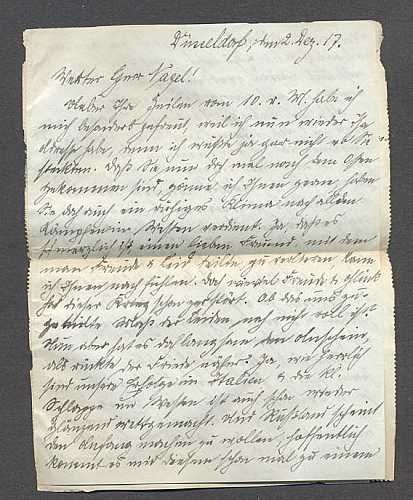 Düsseldorf, den 2. Dez. 17.
Werter Herr Nagel!
Ueber Ihre Zeilen vom 10. v. M. habe ich
mich besonders gefreut, weil ich nun wieder Ihre
Adresse habe, denn ich wußte ja gar nicht wo Sie
steckten. Daß Sie nun das mal nach dem Osten
gekommen sind, gönne ich Ihnen gerne, haben
Sie doch auch ein ruhiges Klima nach all den
Kämpfen im Westen verdient. Ja, daß es
schmerzlich ist einen lieben Freund, mit dem
man Freude & Leid teilte zu verlieren kann
ich Ihnen nach fühlen. Doch wieviel Freude & Glück
hat dieser Krieg schon zerstört. Ob das uns zu-
geteilte Maß der Leiden, noch nicht voll ist?
Nun aber hat es doch langsam den Anschein,
als rückte der Friede näher. Ja, wie herrlich
sind unsere Erfolge in Italien, & die kl.
Schlappe im Westen ist auch schon wieder
glänzend wettgemacht. Und Rußland scheint
den Anfang machen zu wollen, hoffentlich
kommt es mit diesem schon mal zu einem